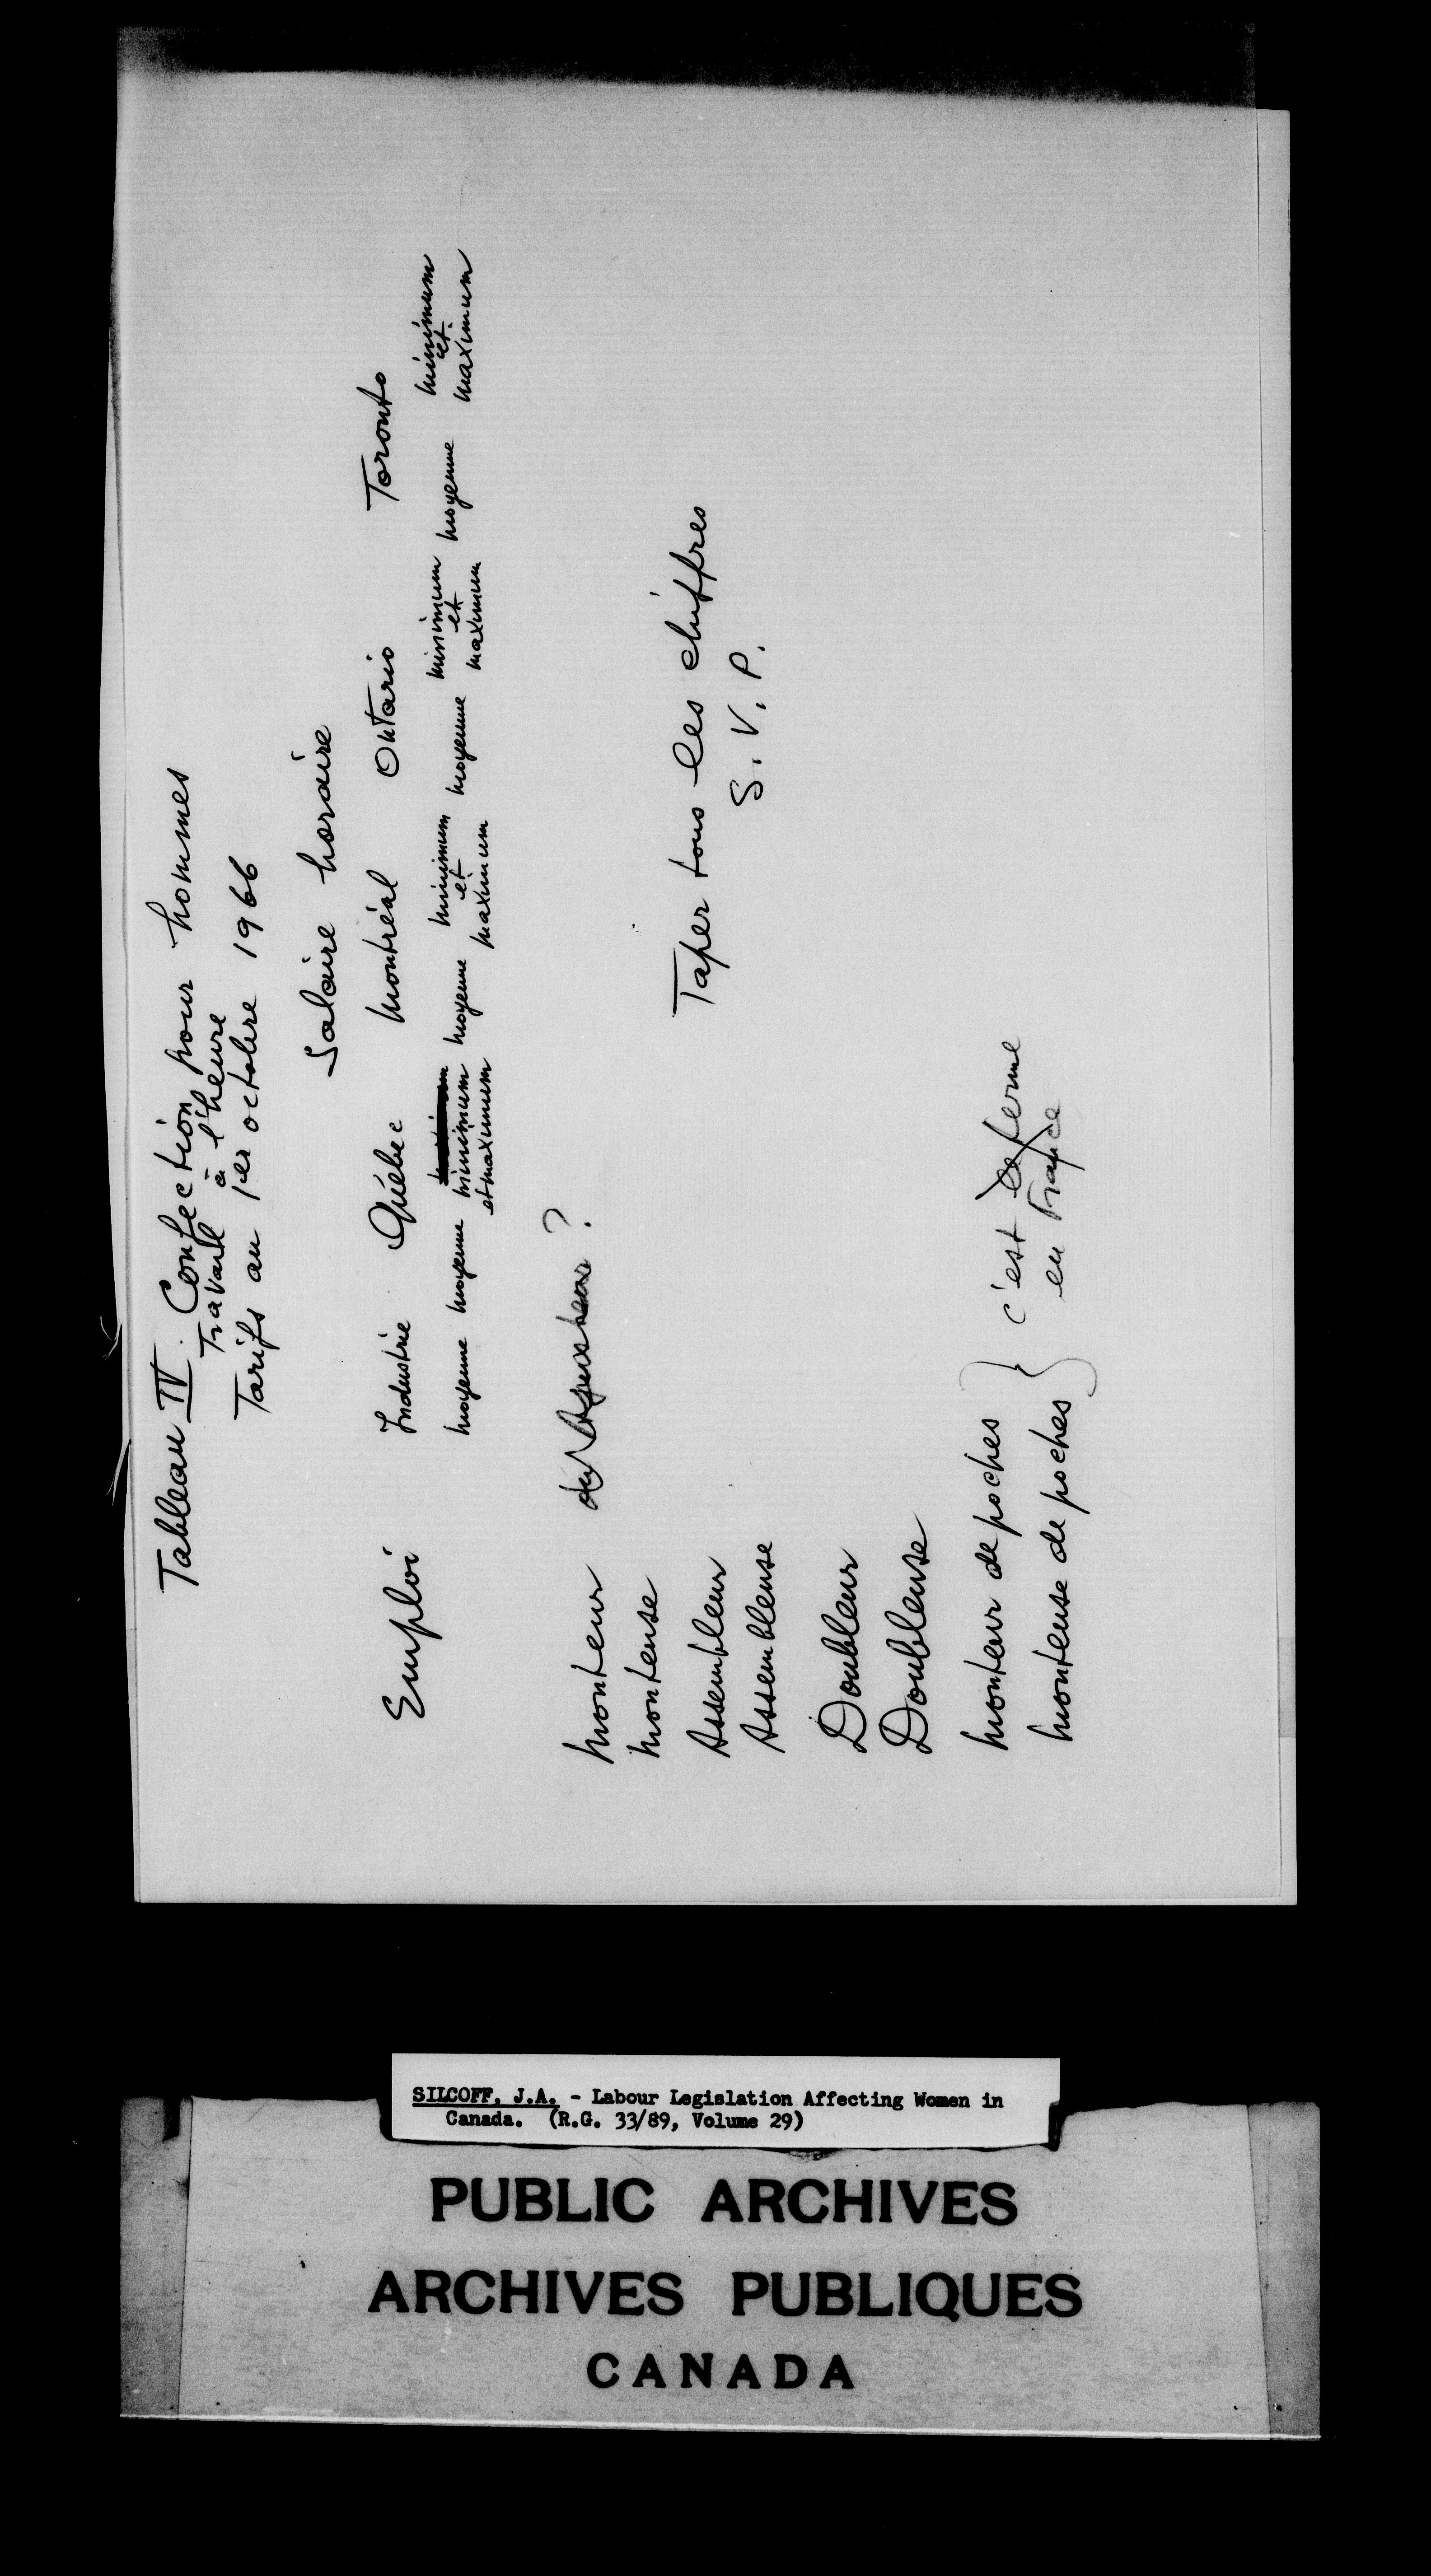 Tableau IV. Confection pour hommes
Travail à l'heure
Tarifs au 1er octobre 1966
Salaire horaire
Emploi Industrie Québec Montréal Ontario Toronto
moyenne moyenne minimum et maximum moyenne minimum et maximum moyenne minimum et maximum moyenne minimum et maximum
Monteur ou Ajusteur ?
Monteuse
Assembleur
Assembleuse
Taper tous les chiffres
S.V.P.
Doubleur
Doubleuse
Monteur de poches } c'est le terme
Monteuse de poches } en France
SILCOFF, J.A. - Labour Legislation Affecting Women in
Canada. (R.G. 33/89, Volume 29)
PUBLIC ARCHIVES
ARCHIVES PUBLIQUES
CANADA